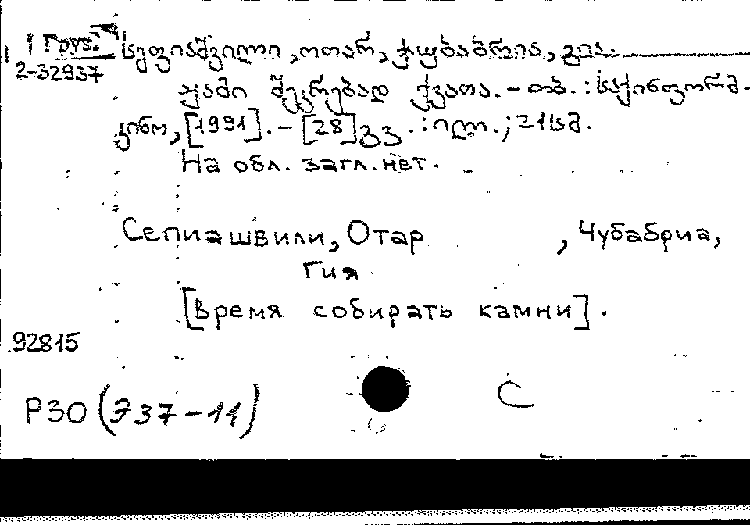 1 Груз.
2-32937
სეფიაშვილი, ოთარ, ჭუბაბრია, გია.
ჟამი შეკრებად ქვათა. - თბ. : საქინფორმ-
კინო, [1991]. - [28] გვ. : ილ. ; 21 სმ.
На обл. загл. нет.
Сепиашвили, Отар , Чубабриа,
Гия
[Время собирать камни].
92815
Р30 (Э37-11)
С